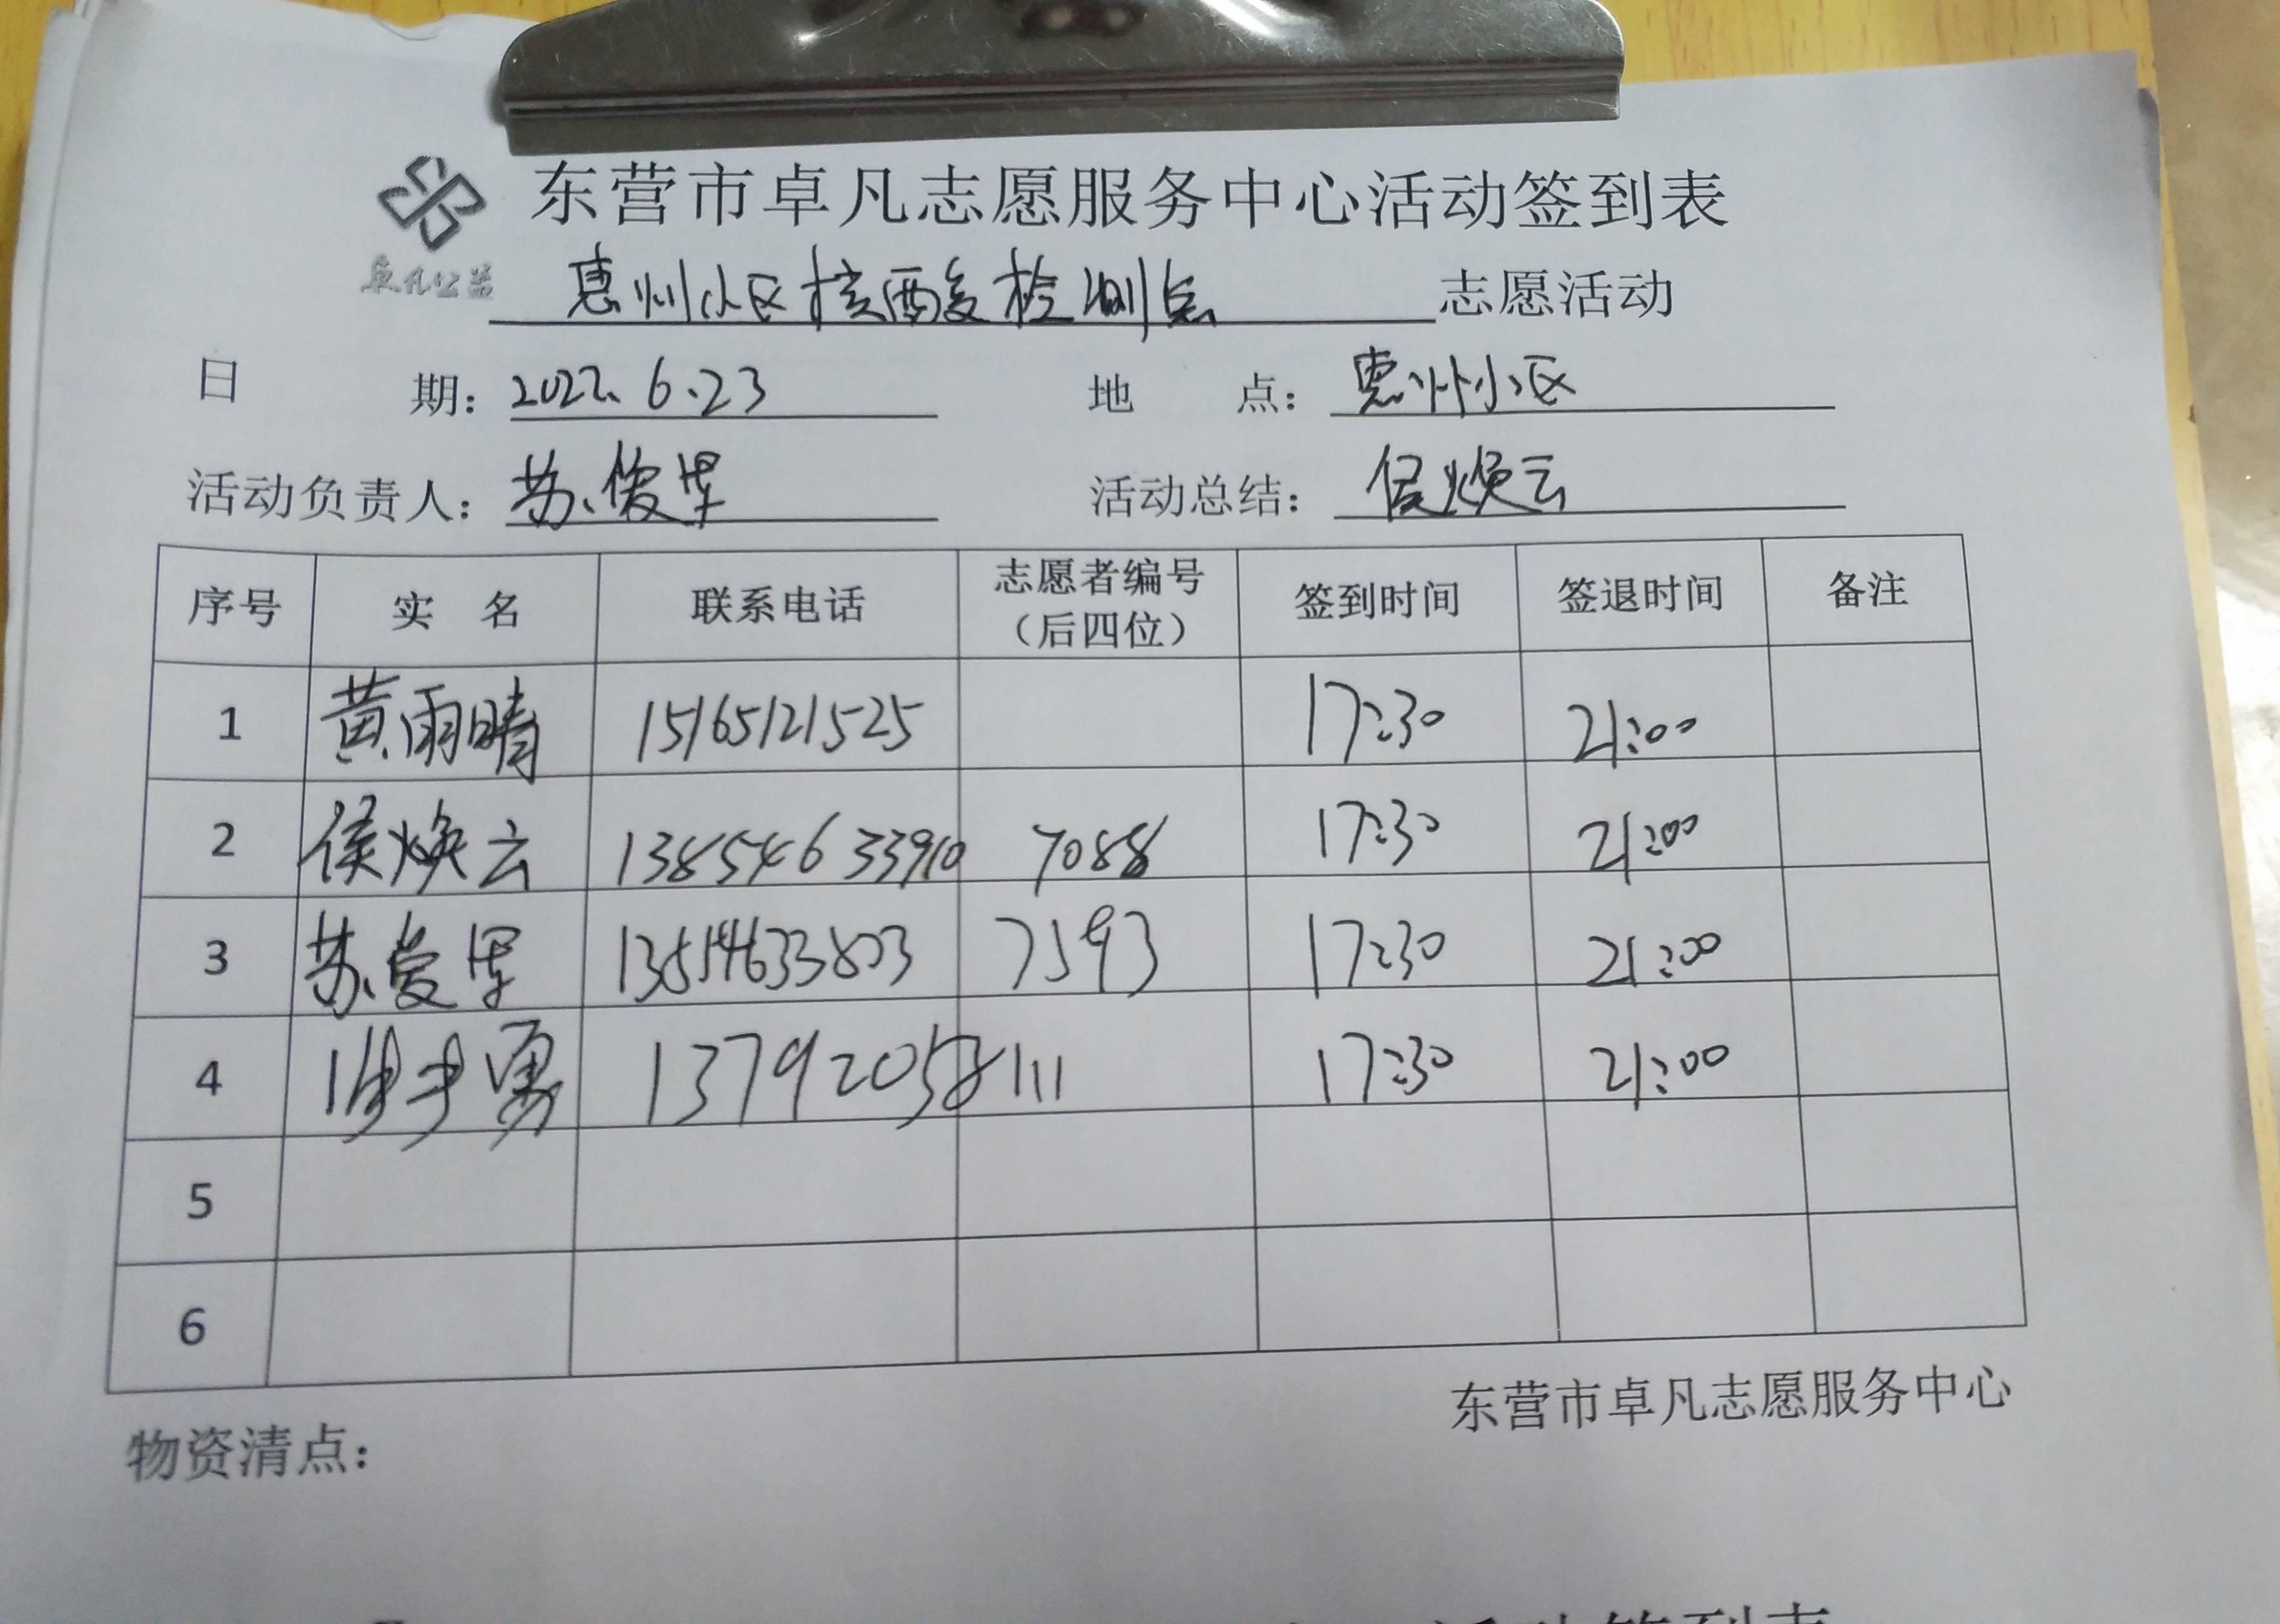 东营市卓凡志愿服务中心活动签到表
卓凡公益
惠州小区核酸检测点 志愿活动
日 期：2022.6.23 地 点：惠州小区
活动负责人：苏俊军 活动总结：侯焕云
序号 实 名 联系电话 志愿者编号（后四位） 签到时间 签退时间 备注
1 黄雨晴 15165121525 17:30 21:00
2 侯焕云 13854633910 7088 17:30 21:00
3 苏 7593 17:30 21:00
4 勇 13792058111 17:30 21:00
5
6
东营市卓凡志愿服务中心
物资清点：